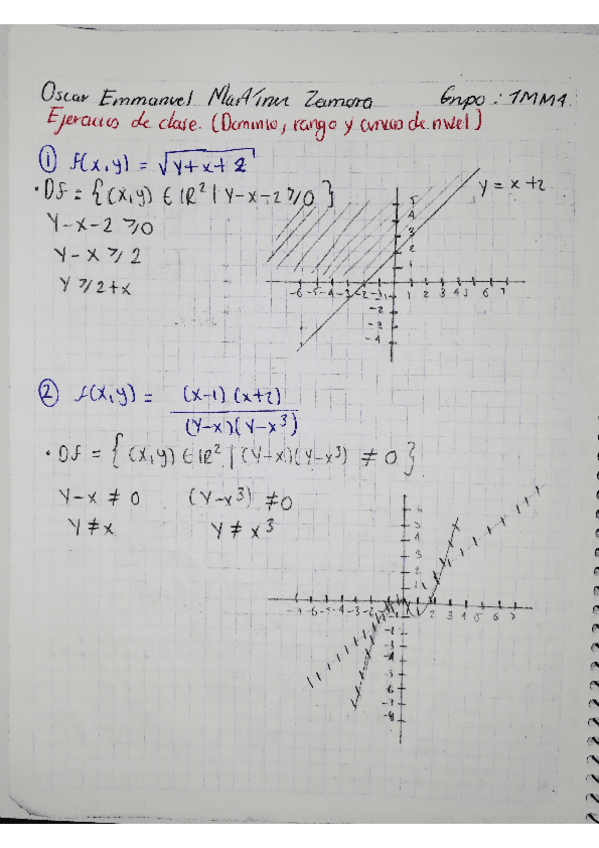 Oscar Emmanuel Martínez Zamora Grupo: 1MM4.
Ejercicios de clase. (Dominio, rango y curvas de nivel)
① f(x,y) = √y+x+2
• Df = {(x,y) ∈ ℝ² | y-x-2 ≥ 0}
y-x-2 ≥ 0
y-x ≥ 2
y ≥ 2+x
y = x+2
5
4
3
2
1
-6 -5 -4 -3 -2 -1 1 2 3 4 5 6 7
-2
-3
-4
② f(x,y) = (x-1)(x+2)
(y-x)(y-x³)
• Df = {(x,y) ∈ ℝ² | (y-x)(y-x³) ≠ 0}
y-x ≠ 0 (y-x³) ≠ 0
y ≠ x y ≠ x³
6
5
4
3
2
1
-7 -6 -5 -4 -3 -2 -1 1 2 3 4 5 6 7
-1
-2
-3
-4
-5
-6
-7
-8